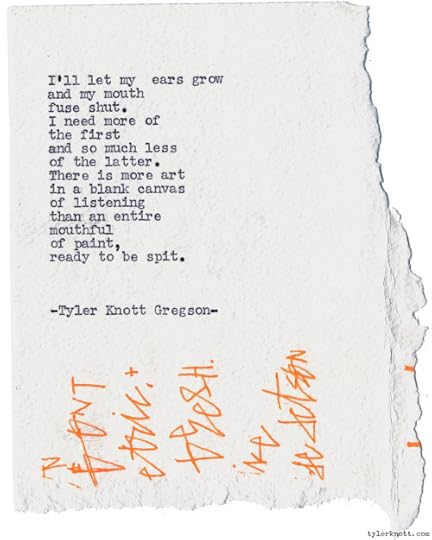 I'll let my ears grow
and my mouth
fuse shut.
I need more of
the first
and so much less
of the latter.
There is more art
in a blank canvas
of listening
than an entire
mouthful
of paint,
ready to be spit.
-Tyler Knott Gregson-
tylerknott.com